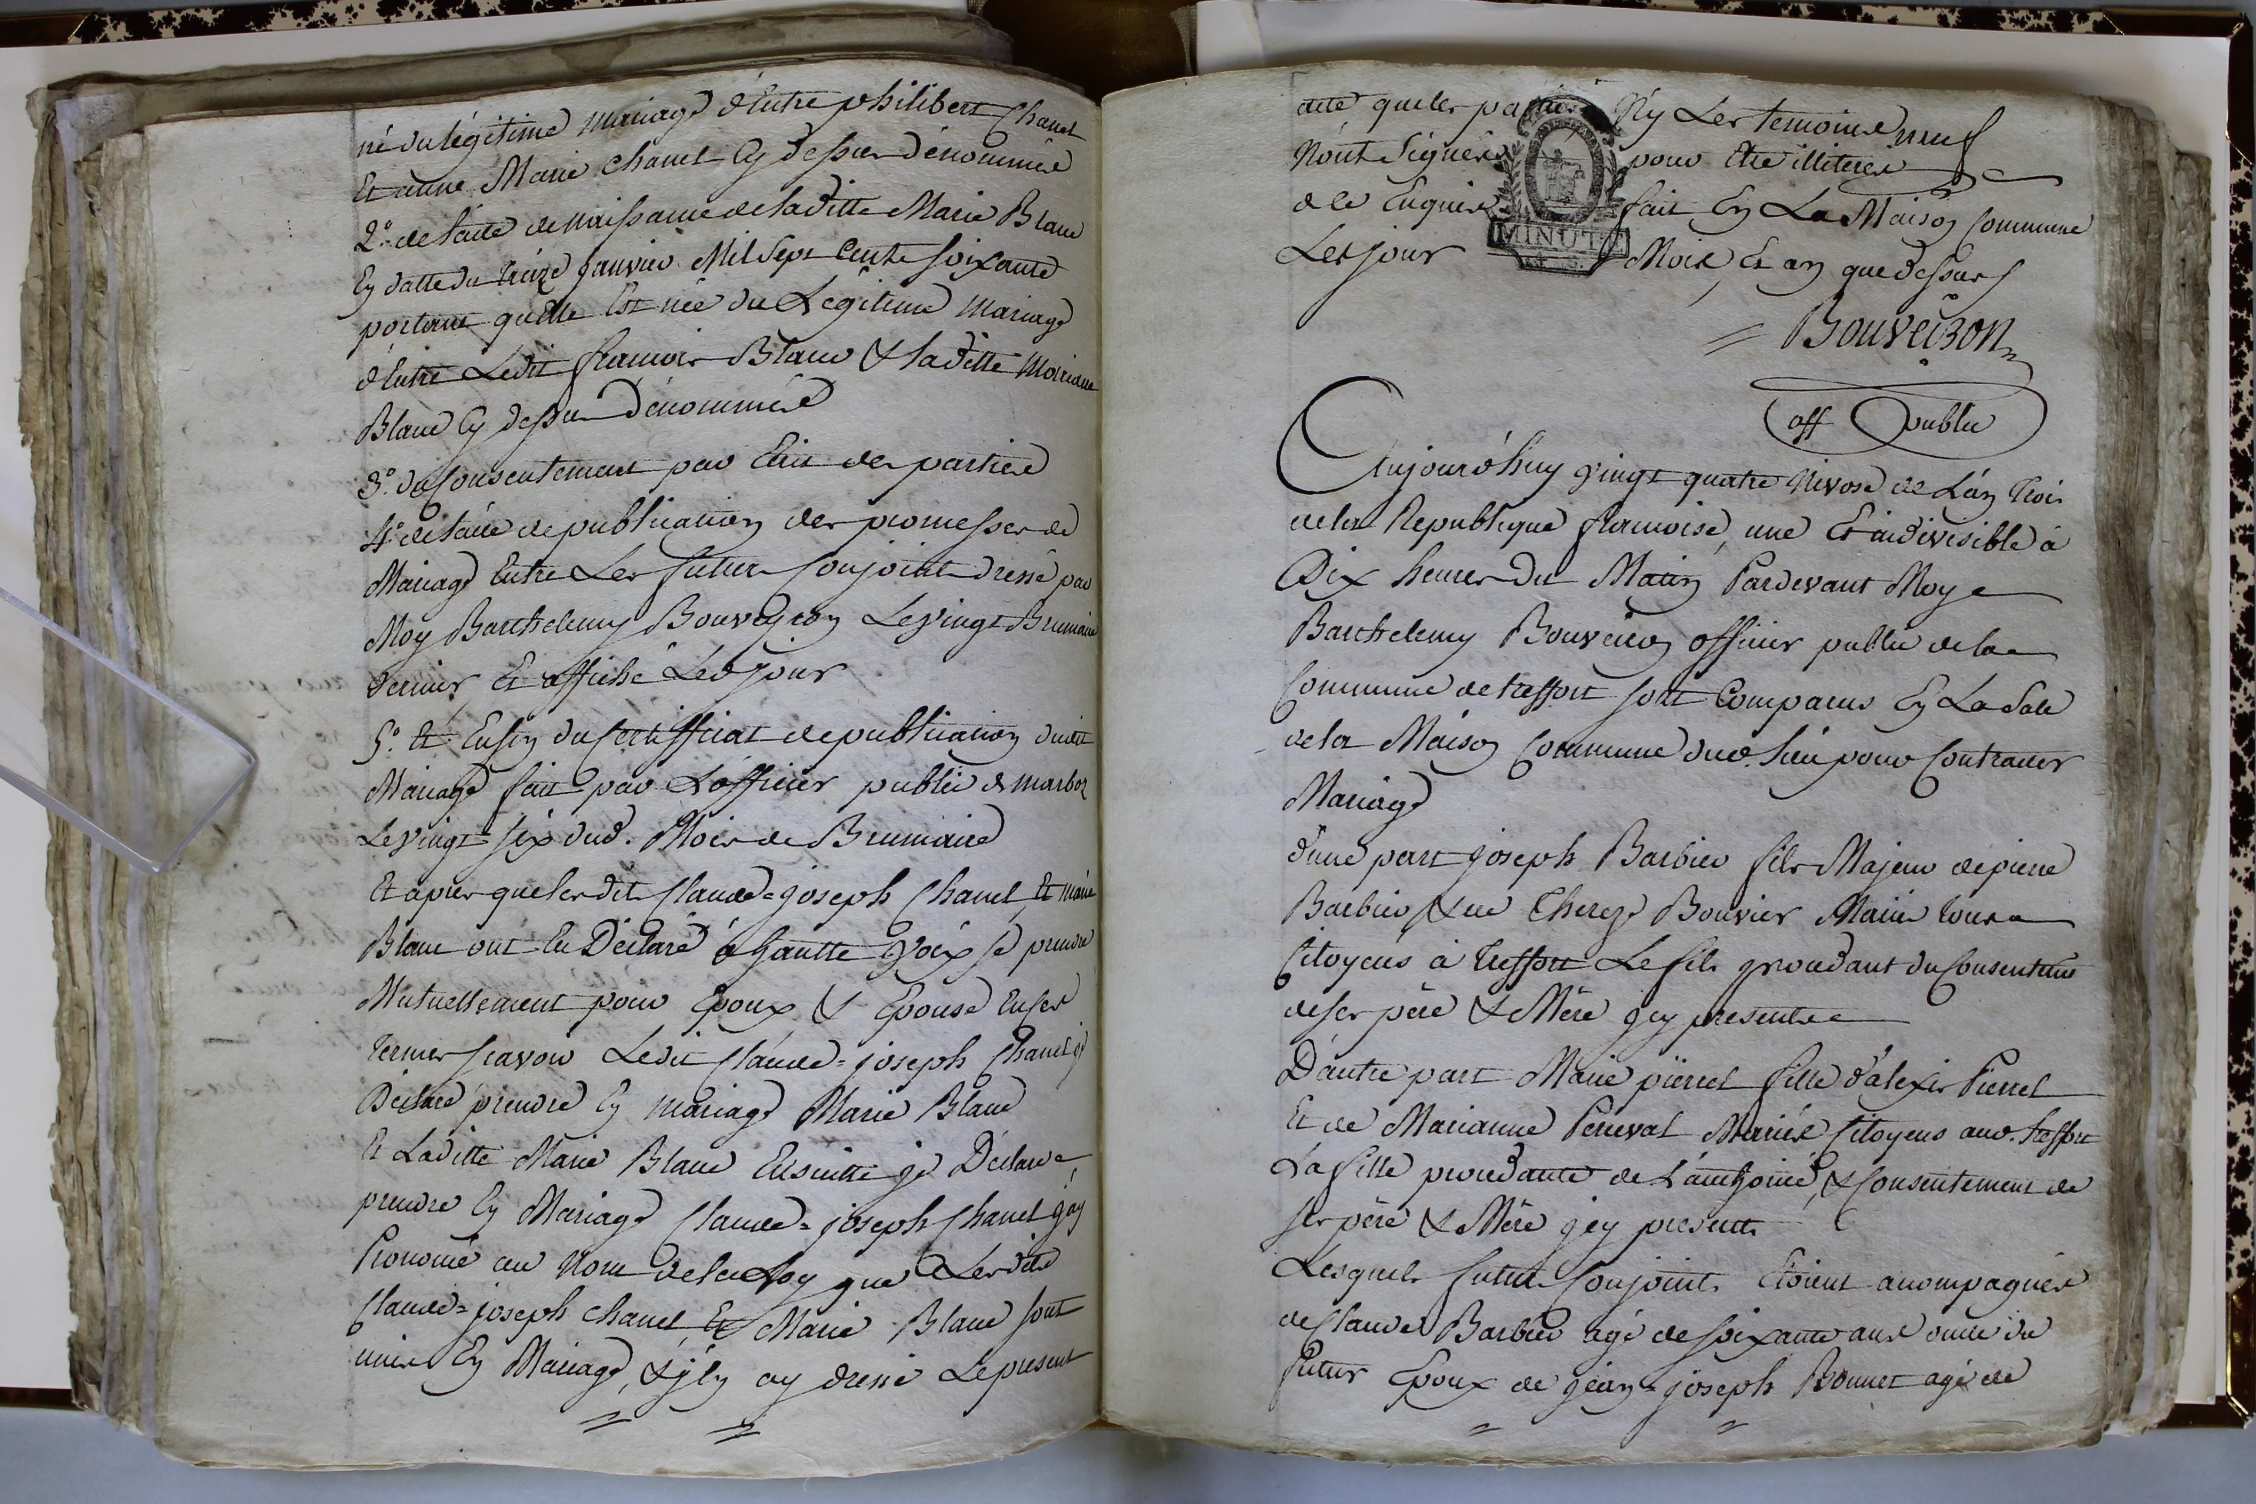 né du légitime mariage d'Entre philibert Chanel
Et anne Marie Chanel Cy dessus dénommés
2.° de l'acte de naissance de laditte Marie Blanc
En datte du treize janvier Mil sept Cents soixante
portant qu'elle Est née du Légitime Mariage
d'Entre Ledit francois Blanc & laditte Mariane
Blanc Cy dessus Dénommés
3.° du Consentement par Ecrit des parties
4.° de l'acte de publication des promesses de
Mariage Entre Les futurs Conjoints dressé par
Moy Barthelemy Bouveyron Le vingt Brumaire
dernier Et affiché Led jour
5.° Et Enfin du Certifficat de publication dudit
Mariage fait par L'officier public de marboz
Le vingt six dud. Mois de Brumaire
Et apres que lesdits Claude=joseph Chanel Et marie
Blanc ont Eu Déclaré à haute voix se prendre
Mutuellement pour Epoux & Epouse En ses
termes scavoir Ledit Claude=joseph Chanel je
Déclare prendre En mariage Marie Blanc
Et Laditte Marie Blanc Ensuitte je Déclare
prendre En Mariage Claude=joseph Chanel j'ay
Prononcé au Nom de la Loy que Lesdits
Claude=joseph Chanel Et Marie Blanc sont
unis En Mariage, & j'En ay dressé Le present
acte que les parties N'y Les temoins neuf
N'ont Signés pour Etre illiterés
de ce Enquis fait En La Maison Commune
Les jour Mois, Et an que dessus
MINUTE
Bouveiron
off public
Aujourd'huy vingt quatre Nivose de L'an trois
de la Republique francoise, une Et indivisible à
Dix heures Du Matin Pardevant Moy
Barthelemy Bouveiron officier public de la
Commune de treffort sont Comparus En La Sale
de la Maison Commune dud. lieu pour Contracter
Mariage
d'une part joseph Barbier fils Majeur de pierre
Barbier & de Thereze Bouvier Mariés tous
Citoyens à Treffort Le fils procedant du Consentement
de ses père & Mère icy presents
D'autre part Marie pierrel fille d'alexis Pierrel
Et de Marianne Perceval Mariés Citoyens aud. treffort
La fille procedante de L'authorité, & Consentement de
ses père & Mère icy presents
Lesquels futurs Conjoints Etoient accompagnés
de Claude Barbier agé de soixante ans oncle du
futur Epoux de jean=joseph Bonnet agé de